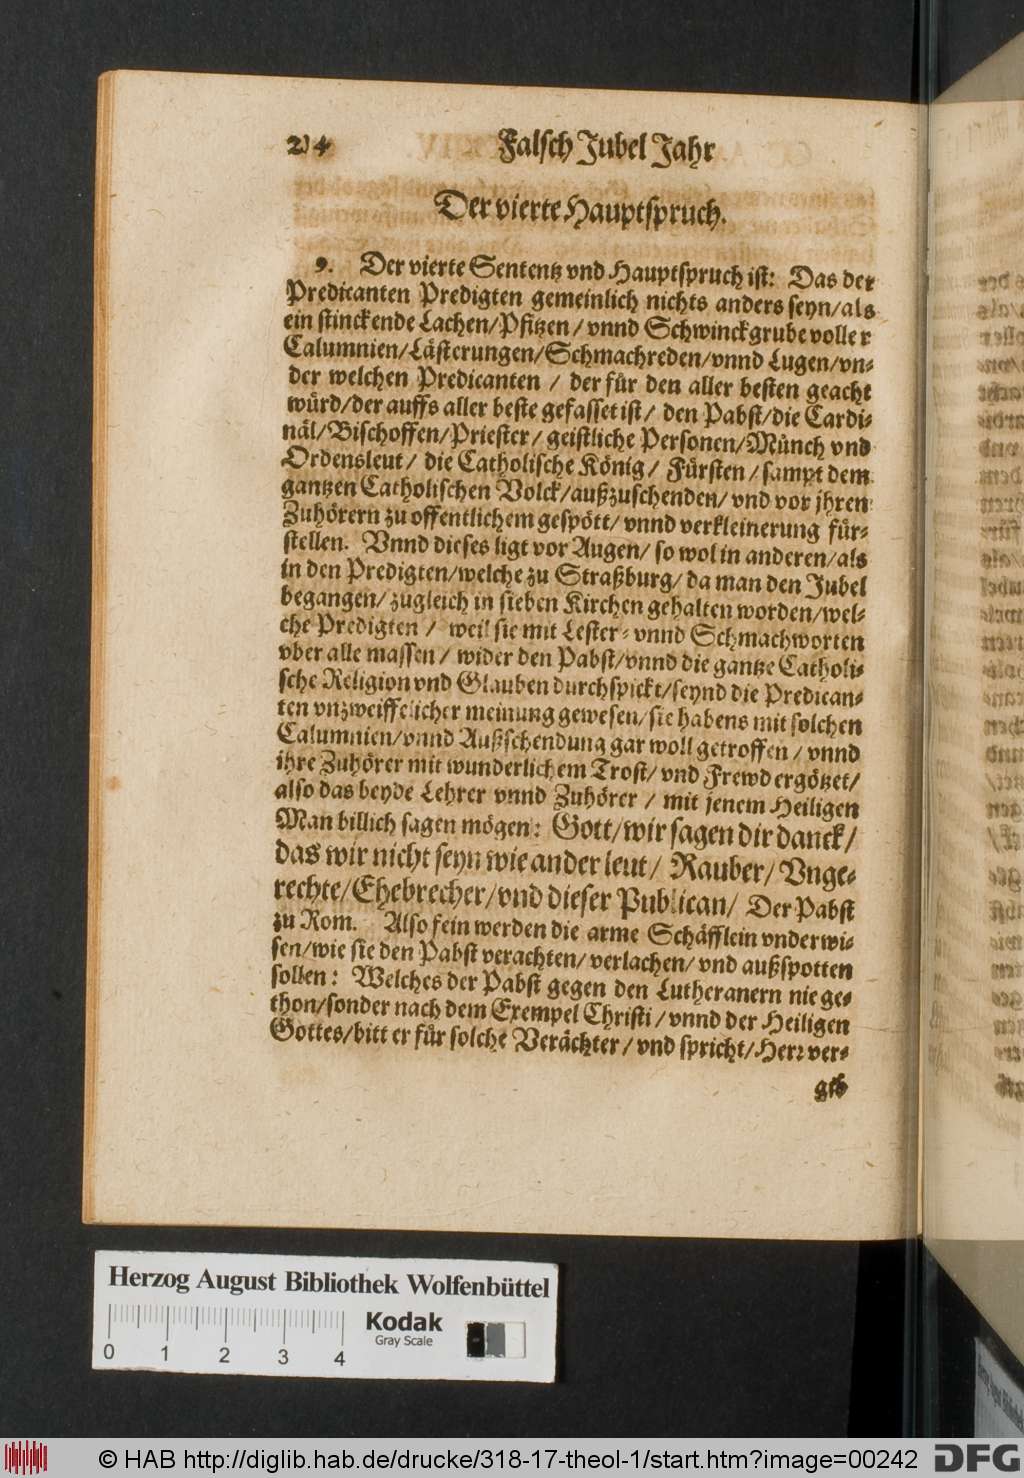 214 Falsch Jubel Jahr
Der vierte Hauptspruch.
9. Der vierte Sententz vnd Hauptspruch ist: Das der
Predicanten Predigten gemeinlich nichts anders seyn/als
ein stinckende Lachen/Pfitzen/vnnd Schwinckgrube voller
Calumnien/Lästerungen/Schmachreden/vnnd Lugen/vn-
der welchen Predicanten / der für den aller besten geacht
würd/der auffs aller beste gefasset ist/ den Pabst/die Cardi-
näl/Bischoffen/Priester/geistliche Personen/Münch vnd
Ordensleut/ die Catholische König/ Fürsten/sampt dem
gantzen Catholischen Volck/außzuschenden/ vnd vor jhren
Zuhörern zu offentlichem gespött/ vnnd verkleinerung für-
stellen. Vnnd dieses ligt vor Augen/ so wol in anderen/als
in den Predigten/welche zu Straßburg/da man den Jubel
begangen/zugleich in sieben Kirchen gehalten worden/wel-
che Predigten / weil sie mit Lester- vnnd Schmachworten
vber alle massen / wider den Pabst/vnnd die gantze Catholi-
sche Religion vnd Glauben durchspickt/seynd die Predican-
ten vnzweiffelicher meinung gewesen/sie habens mit solchen
Calumnien/vnnd Außschendung gar woll getroffen / vnnd
ihre Zuhörer mit wunderlichem Trost/ vnd Frewd ergötzet/
also das beyde Lehrer vnnd Zuhörer / mit jenem Heiligen
Man billich sagen mögen: Gott/wir sagen dir danck/
das wir nicht seyn wie ander leut/ Rauber/ Vnge-
rechte/Ehebrecher/vnd dieser Publican/ Der Pabst
zu Rom. Also fein werden die arme Schäfflein vnderwi-
sen/wie sie den Pabst verachten/ verlachen/ vnd außspotten
sollen: Welches der Pabst gegen den Lutheranern nie ge-
thon/sonder nach dem Exempel Christi / vnnd der Heiligen
Gottes/bitt er für solche Verächter/ vnd spricht/Herr ver-
geb
Herzog August Bibliothek Wolfenbüttel
Kodak
Gray Scale
0 1 2 3 4
© HAB http://diglib.hab.de/drucke/318-17-theol-1/start.htm?image=00242
DFG